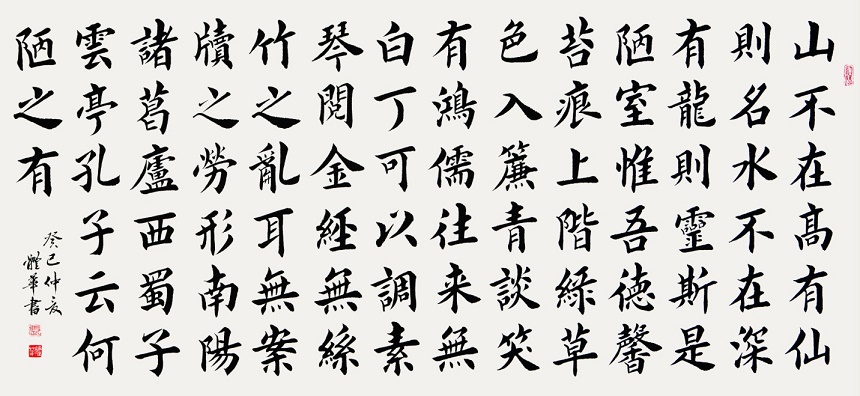 山不在高有仙
則名水不在深
有龍則靈斯是
陋室惟吾德馨
苔痕上階綠草
色入簾青談笑
有鴻儒往来無
白丁可以調素
琴閱金經無絲
竹之亂耳無案
牘之勞形南陽
諸葛廬西蜀子
雲亭孔子云何
陋之有
癸巳仲夏
華書